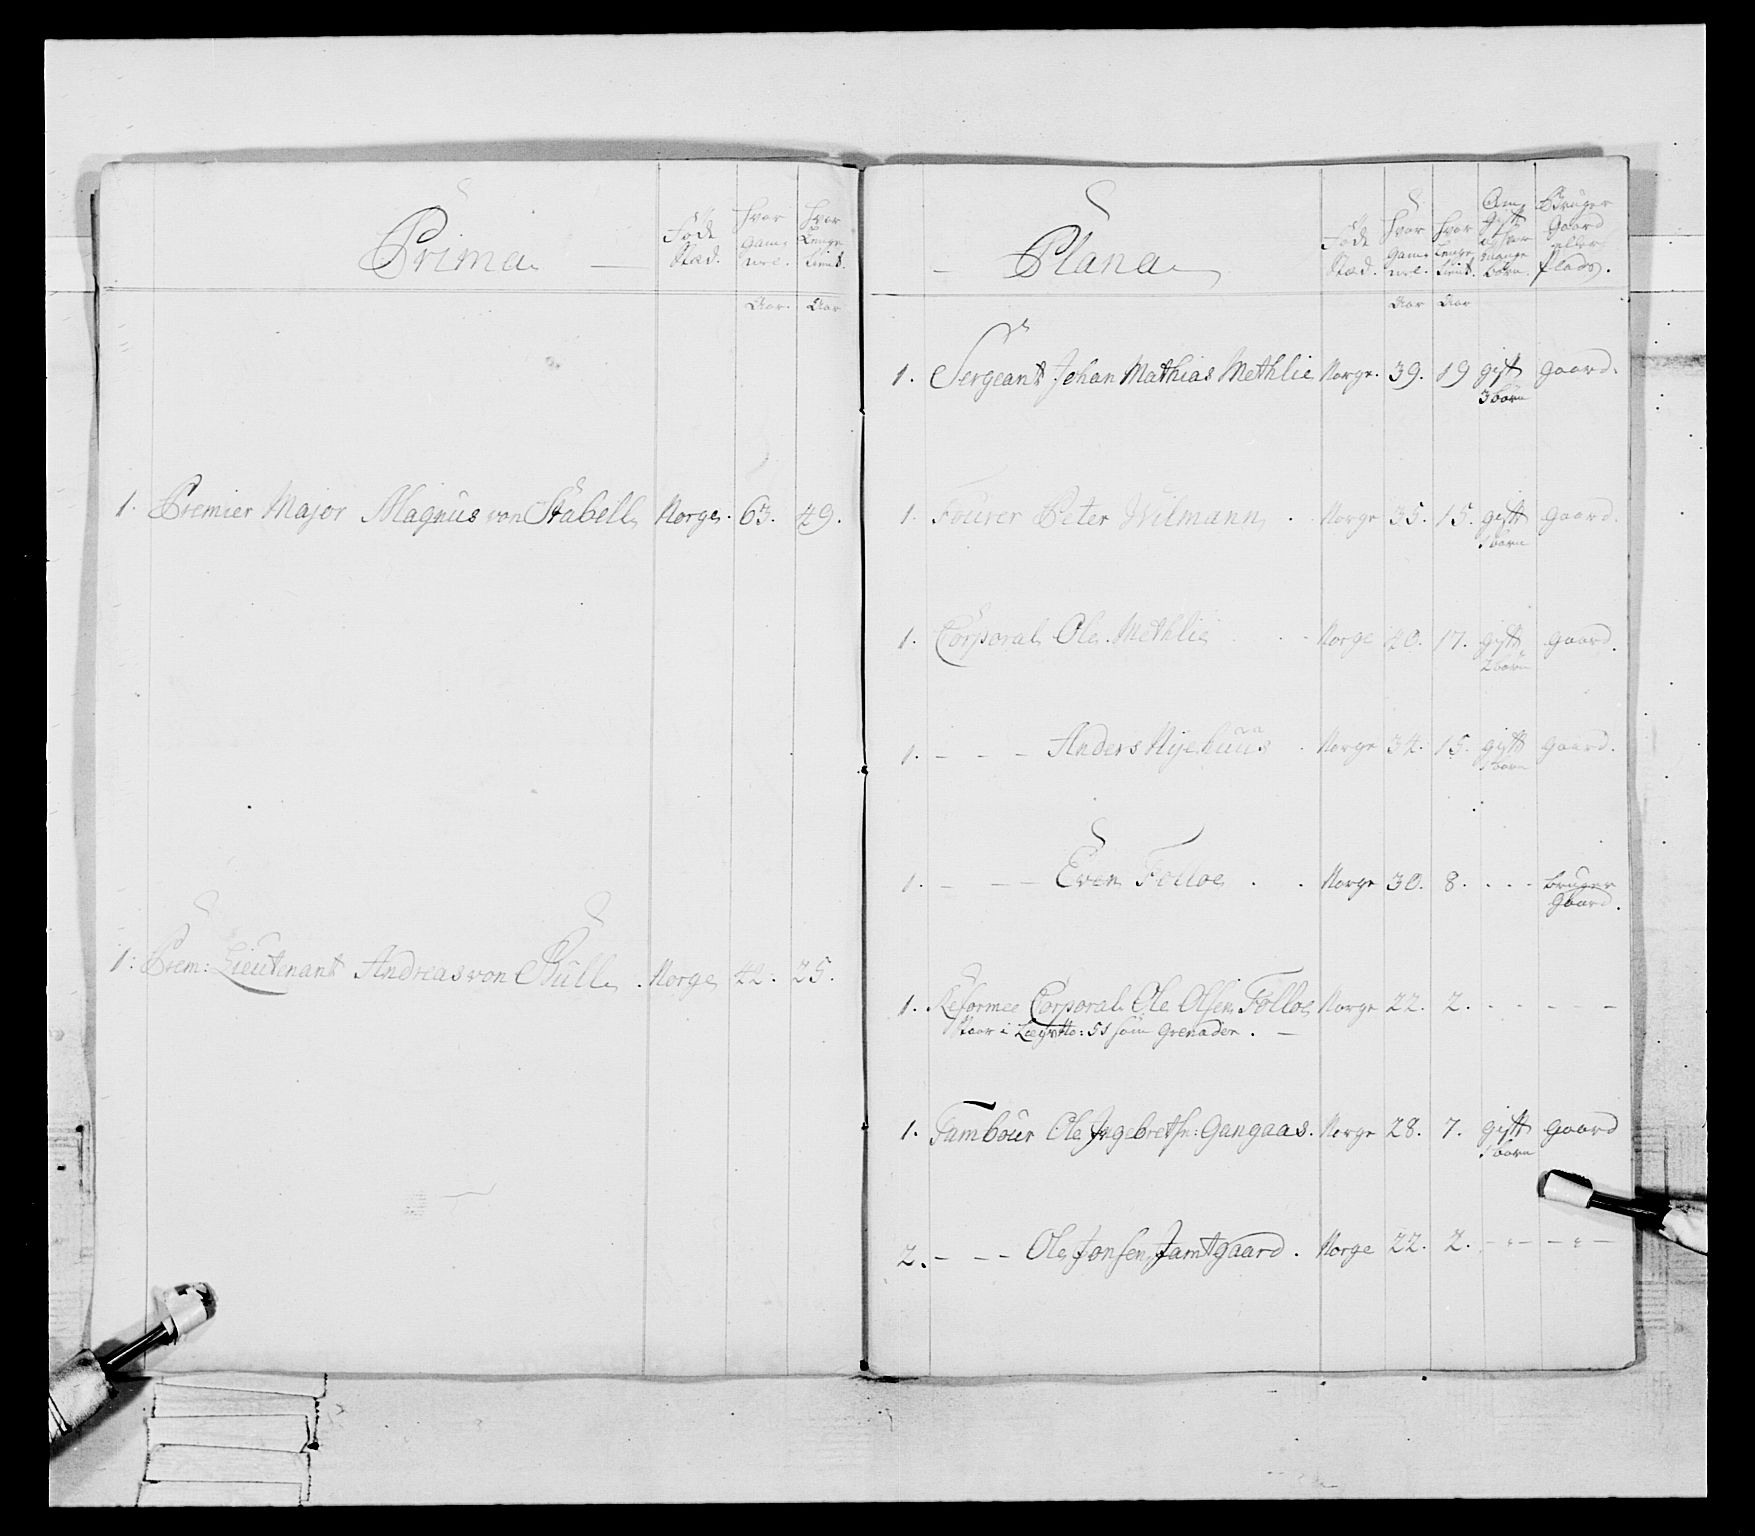 Prima
Føde
Stæd.
hvor
Gam¬
mel.
hvor
Lenge
tient.
Aar.
Aar
1. Premier Major Magnus von Stabell Norge. 63. 49.
1: Prem: Lieutenant Andreas von Bull. Norge 42. 25.
Plana
Føde
Stæd.
hvor
Gam¬
mel.
hvor
Lenge
tient.
Om
Gift
og hvor
mange
børn.
Bruger
Gaard
eller
Plads.
Aar
Aar
1. Sergeant Johan Mathias Methlie Norge. 39. 19 gift gaard.
3 børn
1. Fourer Peter Wilmann. Norge 35. 15. gift gaard.
1 barn
1. Corporal Ole Methlie Norge 40. 17. gift gaard.
2 børn
1. - - - Anders Nyehuus. Norge 34. 15. gift gaard.
1 barn
1. - - - Even Folloe. Norge 30. 8. - - - bruger
Gaard.
1. Reformee Corporal Ole Olsen Folloe Norge 22. 2. - - - - -
Staar i Læg No: 51 som Grenader. -
1. Tambour Ole Ingebretsn: Gangaas. Norge 28. 7. gift gaard
1 barn
2. - - - Ole Jonsen Jamtgaard. Norge 22. 2. - - - -